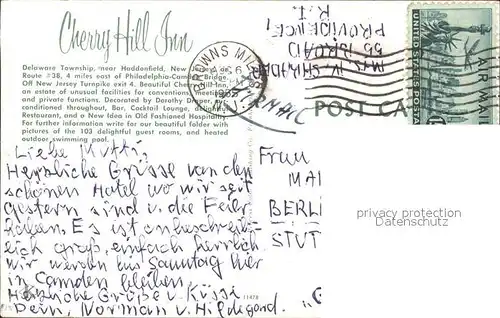 Cherry Hill Inn
Delaware Township, near Haddonfield, New Jersey on
Route #38, 4 miles east of Philadelphia-Camden Bridge.
Off New Jersey Turnpike exit 4. Beautiful Cherry Hill Inn,
an estate of unusual facilities for meetings
and private functions. Decorated by Dorothy Draper,
conditioned throughout, Bar, Cocktail Lounge, delightful
Restaurant, and a New Idea in Old Fashioned Hospitality.
For further information write for our beautiful folder with
pictures of the 103 delightful guest rooms, and heated
outdoor swimming pool.
Liebe Mutti,
Herzliche Grüsse von dem
schönen Hotel wo wir seit
gestern sind u. die Feier
haben. Es ist unbeschreib-
lich groß, einfach herrlich.
Wir werden bis Sonntag hier
in Camden bleiben.
Herzliche Grüße u. Küsse
Dein, Norman u. Hildegard.
11478
BROWNS MILLS
MRS. W.
55 BROAD
PROVIDENCE
R.I.
POST CA
UNITED STATES POSTAGE
Frau
MA
BERLI
STUT
privacy protection
Datenschutz